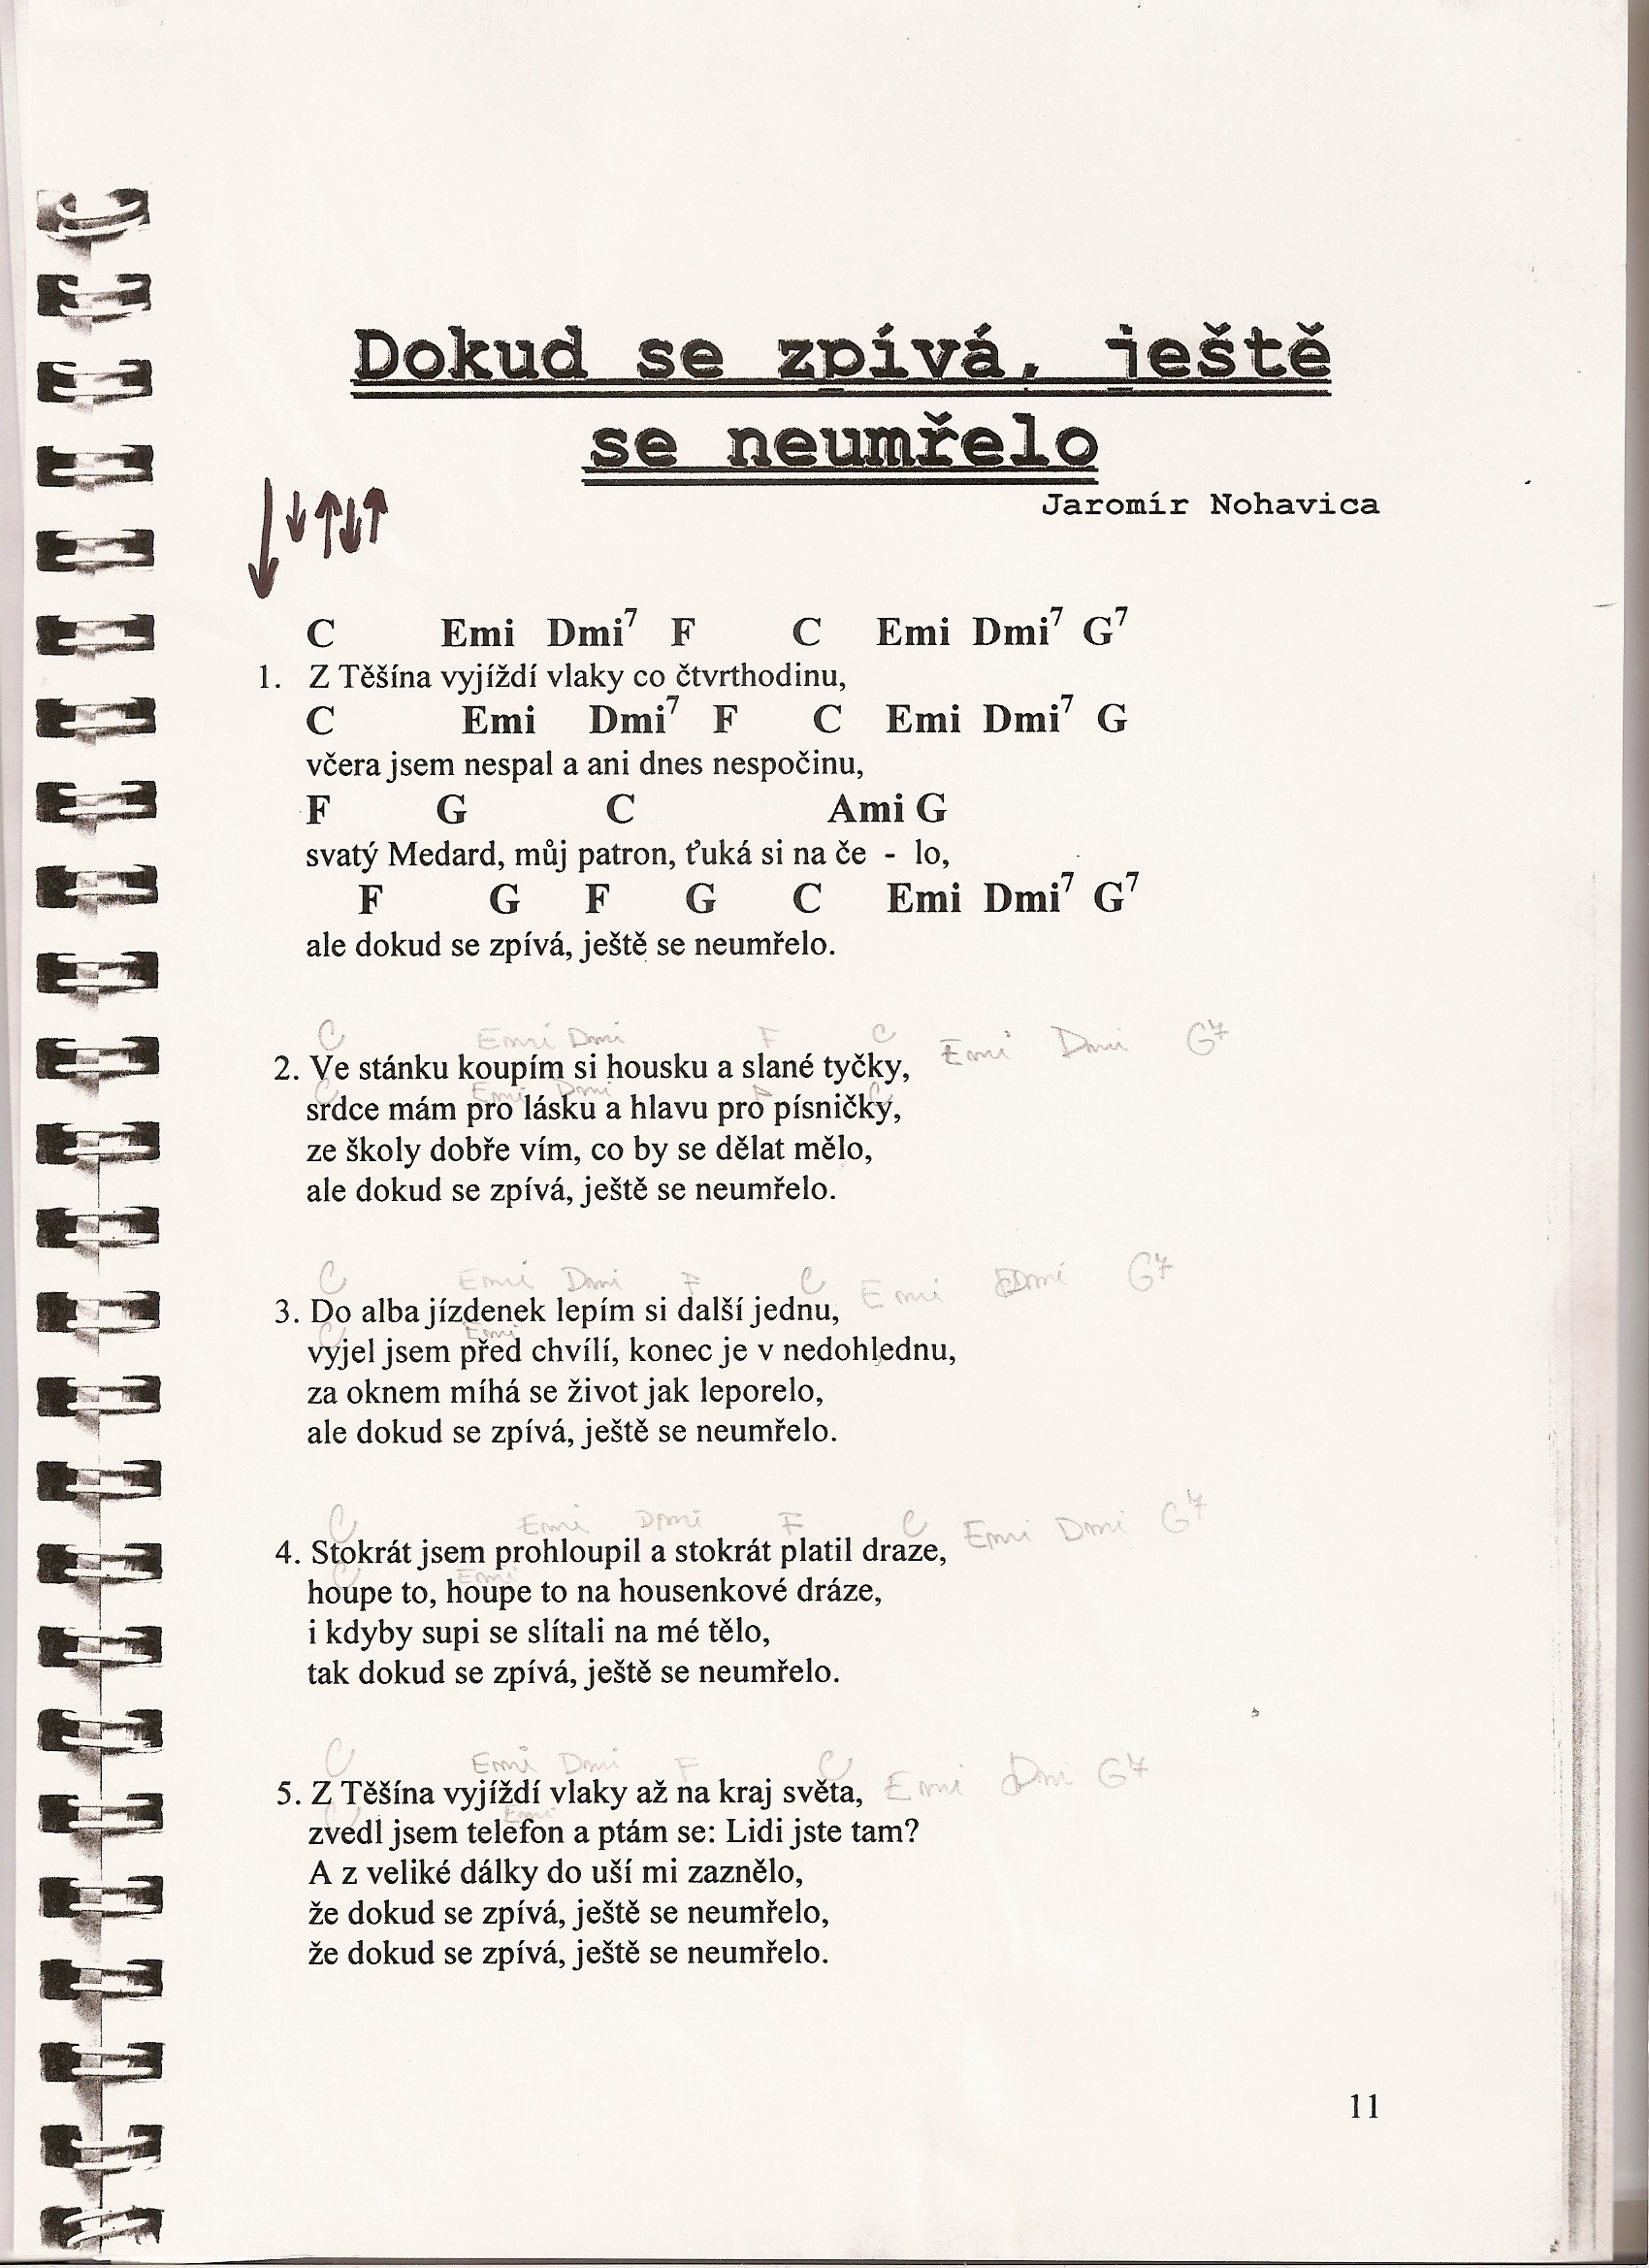 Dokud se zpívá, ještě
se neumřelo
Jaromír Nohavica
C Emi Dmi7 F C Emi Dmi7 G7
1. Z Těšína vyjíždí vlaky co čtvrthodinu,
C Emi Dmi7 F C Emi Dmi7 G
včera jsem nespal a ani dnes nespočinu,
F G C Ami G
svatý Medard, můj patron, ťuká si na če - lo,
F G F G C Emi Dmi7 G7
ale dokud se zpívá, ještě se neumřelo.
C Emi Dmi F C Emi Dmi G7
2. Ve stánku koupím si housku a slané tyčky,
C Emi Dmi F C
srdce mám pro lásku a hlavu pro písničky,
ze školy dobře vím, co by se dělat mělo,
ale dokud se zpívá, ještě se neumřelo.
C Emi Dmi F C Emi Dmi G7
3. Do alba jízdenek lepím si další jednu,
C Emi
vyjel jsem před chvílí, konec je v nedohlednu,
za oknem míhá se život jak leporelo,
ale dokud se zpívá, ještě se neumřelo.
C Emi Dmi F C Emi Dmi G7
4. Stokrát jsem prohloupil a stokrát platil draze,
C Emi
houpe to, houpe to na housenkové dráze,
i kdyby supi se slítali na mé tělo,
tak dokud se zpívá, ještě se neumřelo.
C Emi Dmi F C Emi Dmi G7
5. Z Těšína vyjíždí vlaky až na kraj světa,
C Emi
zvedl jsem telefon a ptám se: Lidi jste tam?
A z veliké dálky do uší mi zaznělo,
že dokud se zpívá, ještě se neumřelo,
že dokud se zpívá, ještě se neumřelo.
11